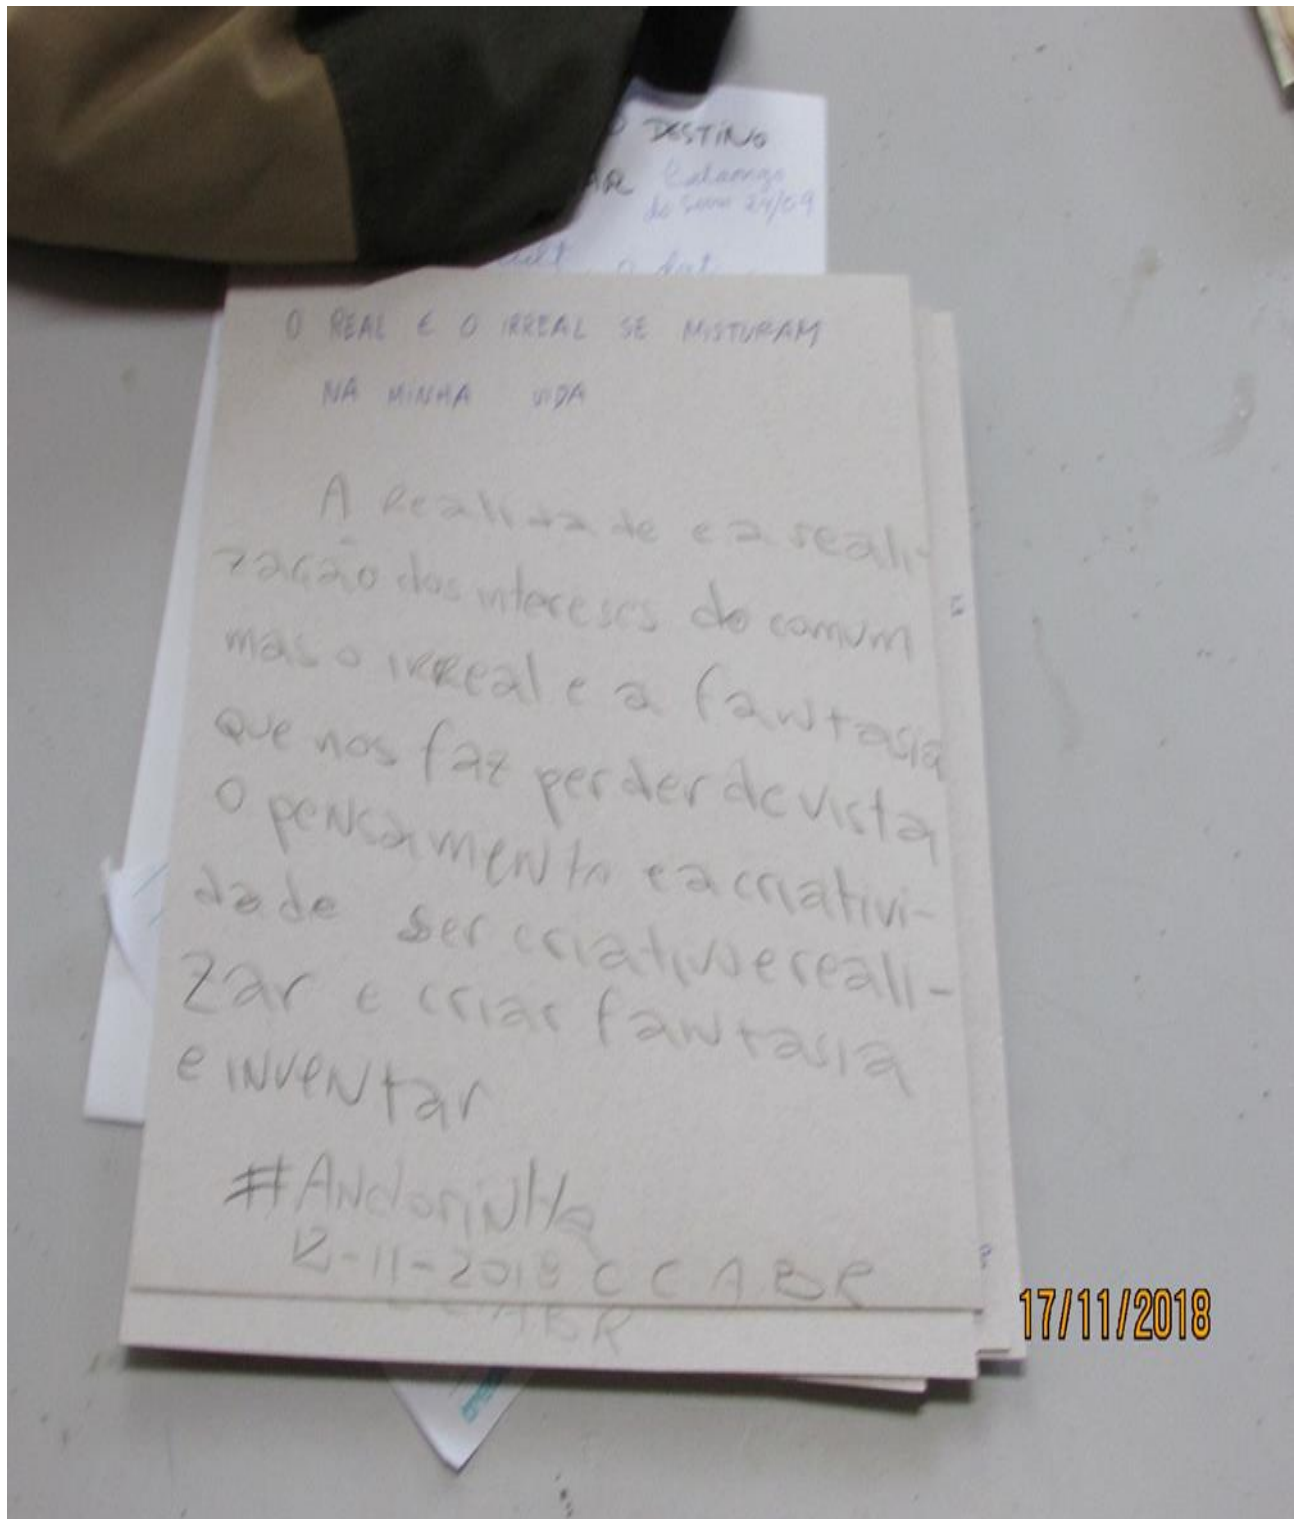 DESTINO
do 24/09
O REAL E O IRREAL SE MISTURAM
NA MINHA VIDA
A Realidade e a reali-
zação dos intereses do comum
mas o irreal e a fantasia
que nos faz perder de vista
O pensamento e a criativi-
dade ser criativo e reali-
zar e criar fantasia
e inventar
#Andorinha
12-11-2018 C C A B R
CCABR
17/11/2018